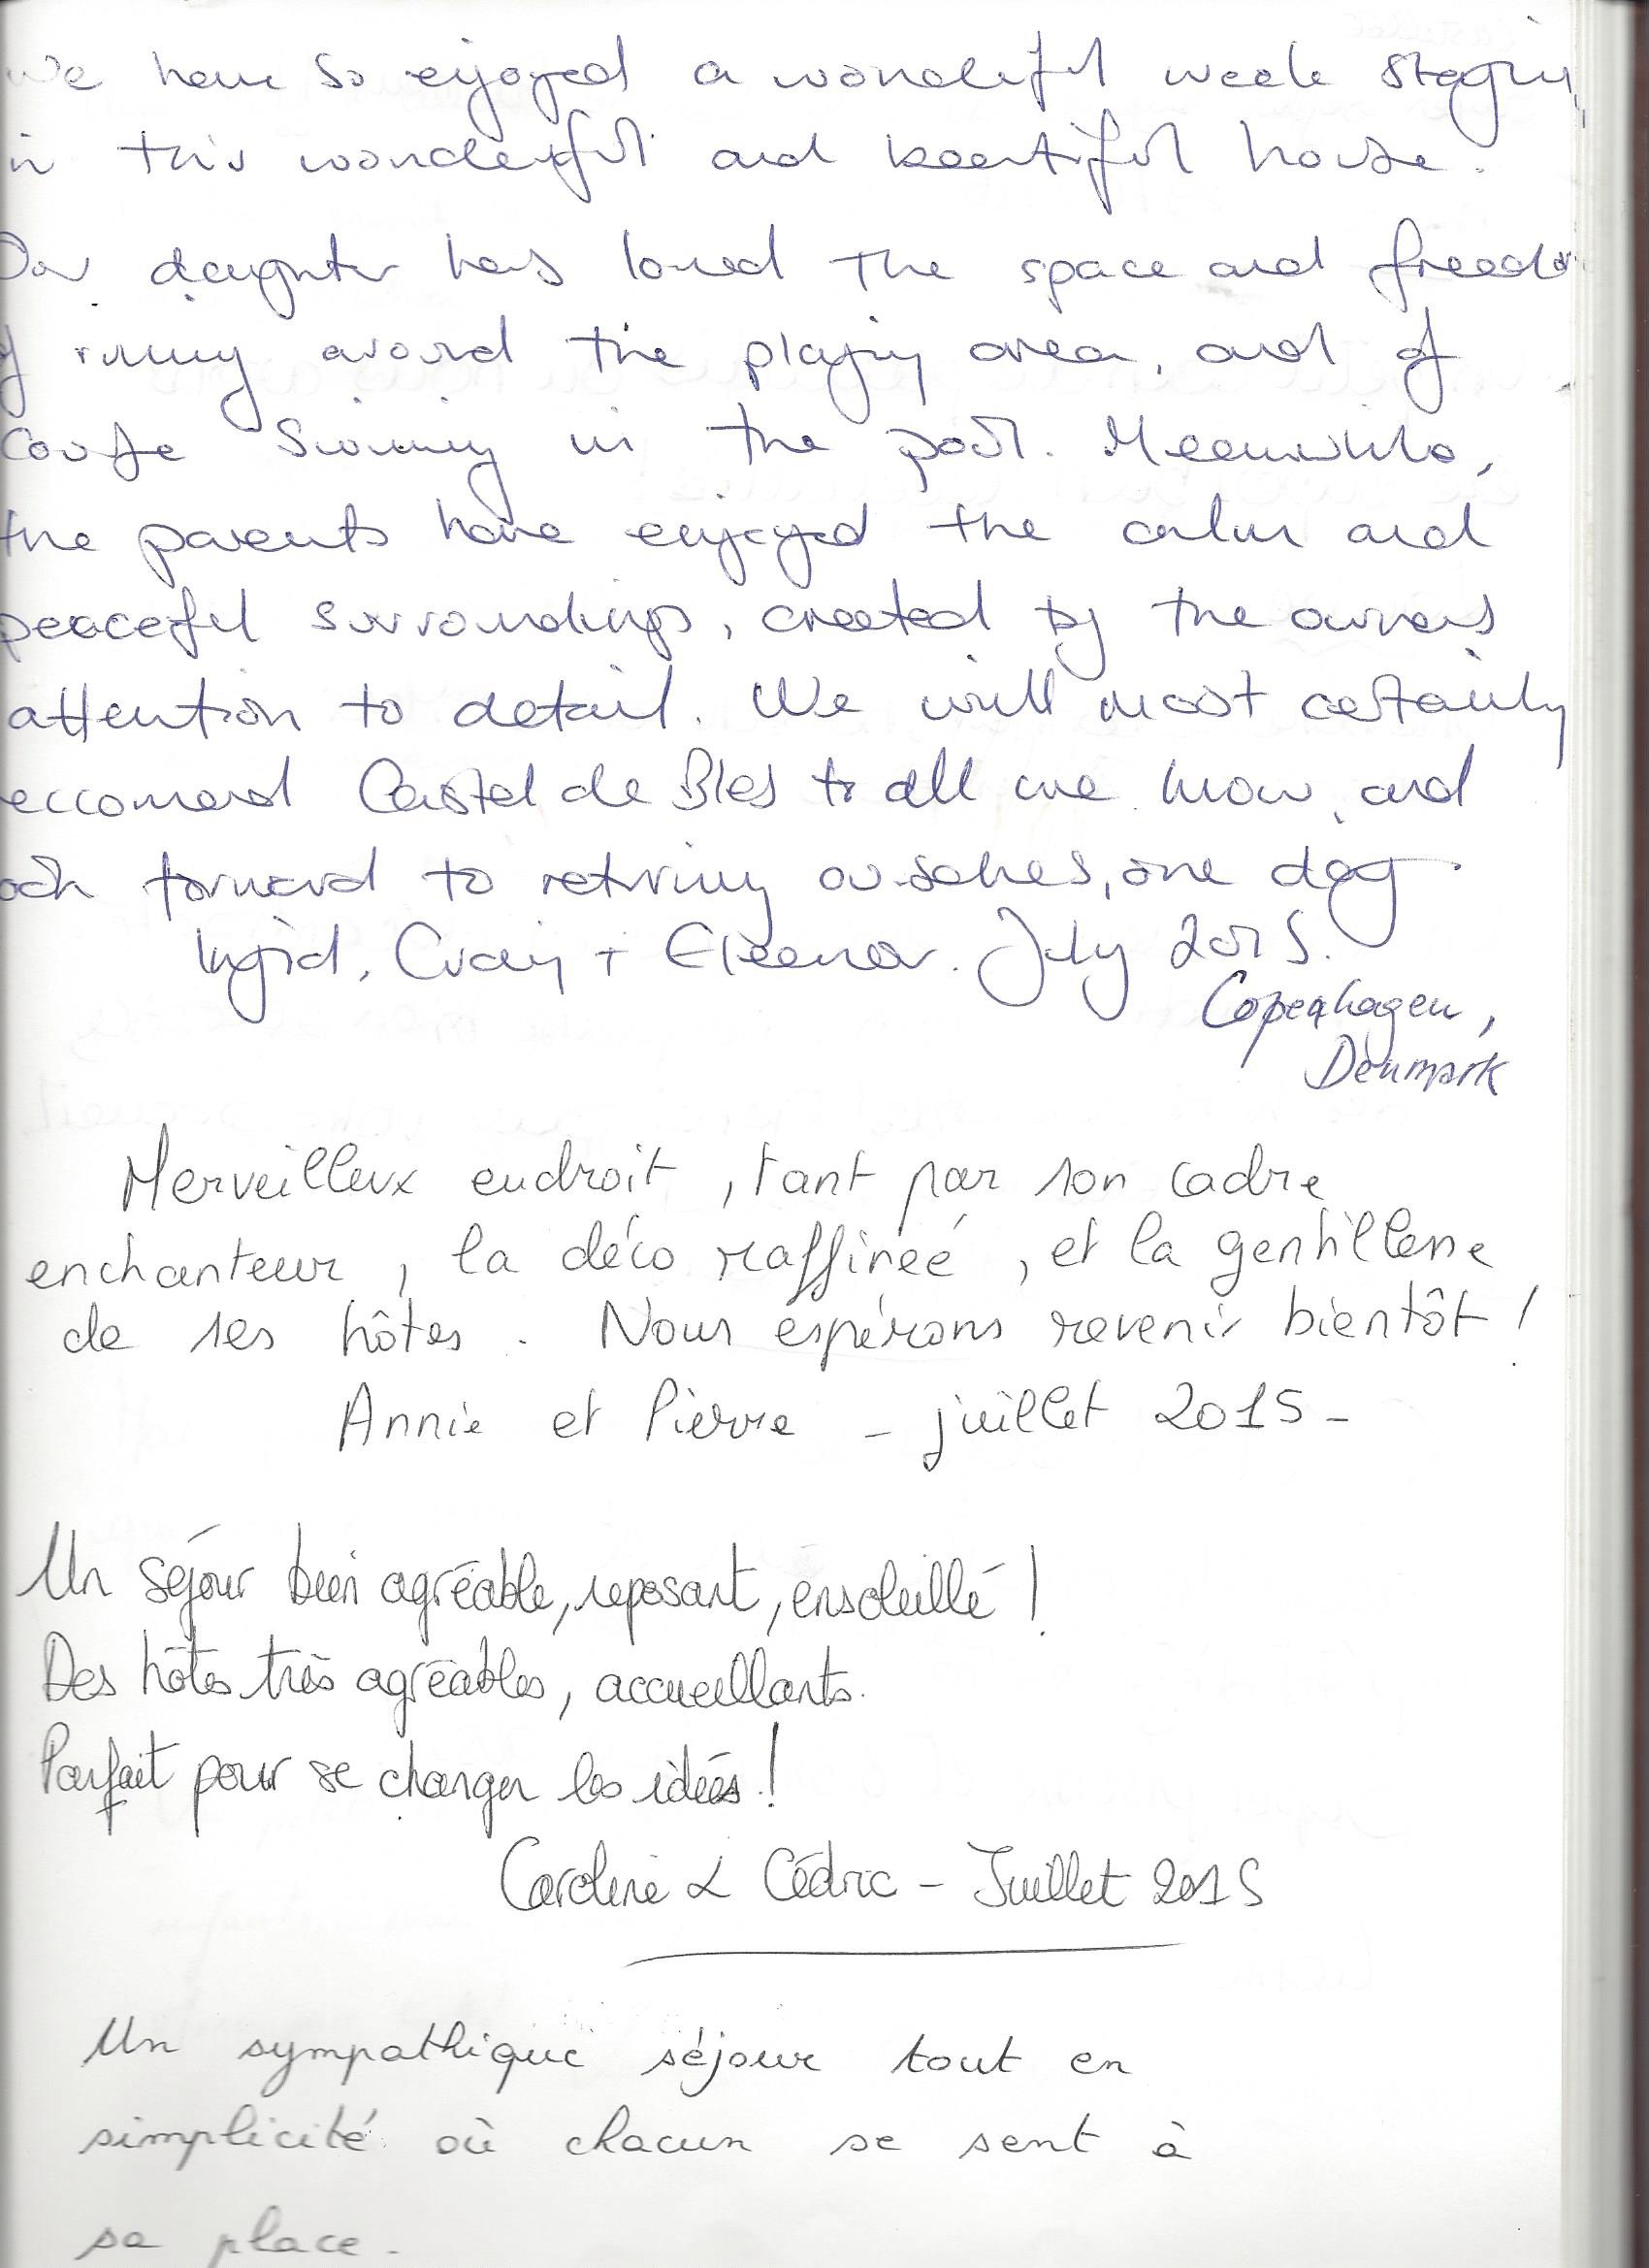 We have so enjoyed a wonderful week staying
in this wonderful and beautiful house.
Our daughter has loved the space and freedo
of runing around the playing area, and of
Course Swiming in the pool. Meanwhile,
the parents have enjoyed the calm and
peaceful surroundings, created by the owners
attention to detail. We will most certainly
eccomend Castel de Bles to all we know, and
ook forward to retiring ourselves, one day.
Ingrid, Craig + Eleanor. July 2015.
Copenhagen,
Denmark
Merveilleux endroit, tant par son cadre
enchanteur, la déco raffinéé, et la gentillesse
de ses hôtes. Nous espérons revenir bientôt !
Annie et Pierre - juillet 2015 -
Un séjour bien agréable, reposant, ensoleillé !
Des hôtes très agréables, accueillants.
Parfait pour se changer les idées !
Caroline & Cédric - Juillet 2015
Un sympathique séjour tout en
simplicité où chacun se sent à
sa place.